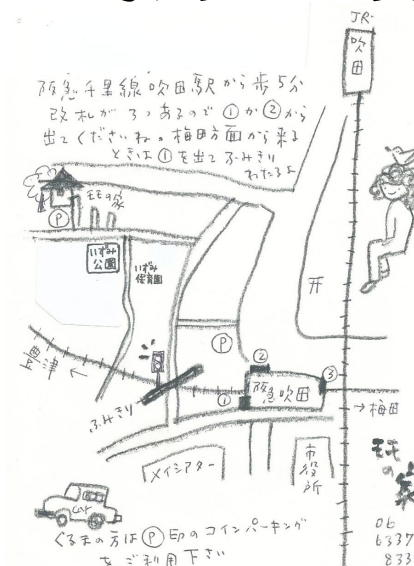 JR
吹田
阪急千里線吹田駅から歩5分
改札が3つあるので①か②から
出てくださいね。梅田方面から来る
ときは①を出てふみきり
わたるよ
モモの家
P
いずみ
公園
いずみ
保育園
P
②
③
①
阪急吹田
豊津
ふみきり
→梅田
メイシアター
市役所
モモの家
CAR
くるまの方はⓅ印のコインパーキング
をご利用下さい
06
6337
833